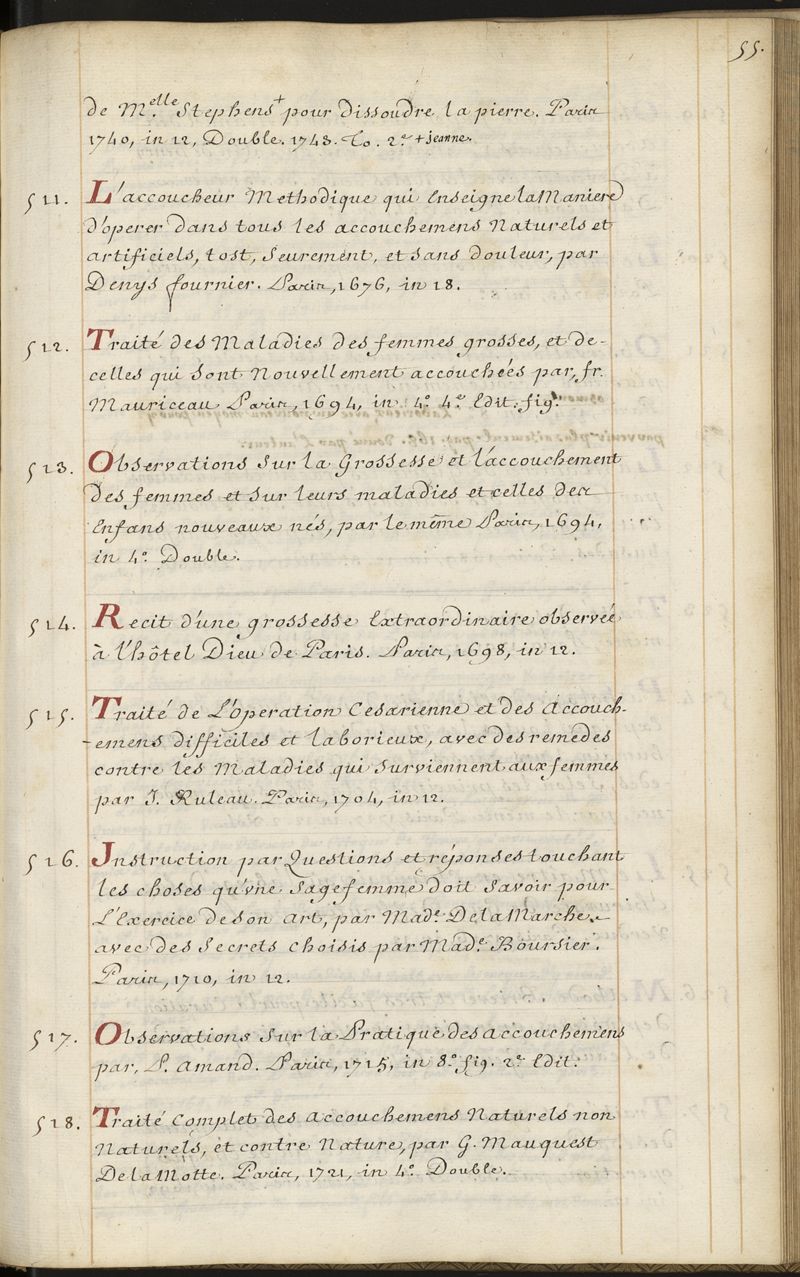 55.
de M.elle Stephens+ pour dissoudre la pierre. Paris
1740, in 12, Double. 1743. To. 2.e + jeanne.
511. L'accoucheur Methodique qui Enseigne la Maniere
d'operer dans tous les accouchemens Naturels et
artificiels, tost, seurement, et sans douleur, par
Denys fournier. Paris, 1676, in 18.
512. Traité des Maladies des femmes grosses, et de-
celles qui sont nouvellement accouchées par, fr.
Mauriceau Paris, 1694, in 4.º 4.e Edit. fig.
513. Observations sur la Grossesse et l'accouchement
des femmes et sur leurs maladies et celles des
Enfans nouveaux nés, par le même Paris, 1694,
in 4.º Double.
514. Recit d'une grossesse Extraordinaire observée
à l'hôtel Dieu de Paris. Paris, 1698, in 12.
515. Traité de L'operation Cesarienne et des Accouch-
-emens difficiles et laborieux, avec des remedes
contre les Maladies qui surviennent aux femmes
par J. Ruleau. Paris, 1704, in 12.
516. Jnstruction par Questions et réponses touchant
les choses qu'vne Sagefemme doit savoir pour
L'Exercice de son Art, par Mad.e De la Marche
avec des Secrets choisis par Mad.e Boursier.
Paris, 1710, in 12.
517. Observations sur la Pratique des accouchemens
par, P. Amand. Paris, 1715, in 8.º fig. 2.e Edit.
518. Traité Complet des Accouchemens Naturels non
Naturels, et contre Nature, par G. Mauquest
De la Motte. Paris, 1721, in 4.º Double.